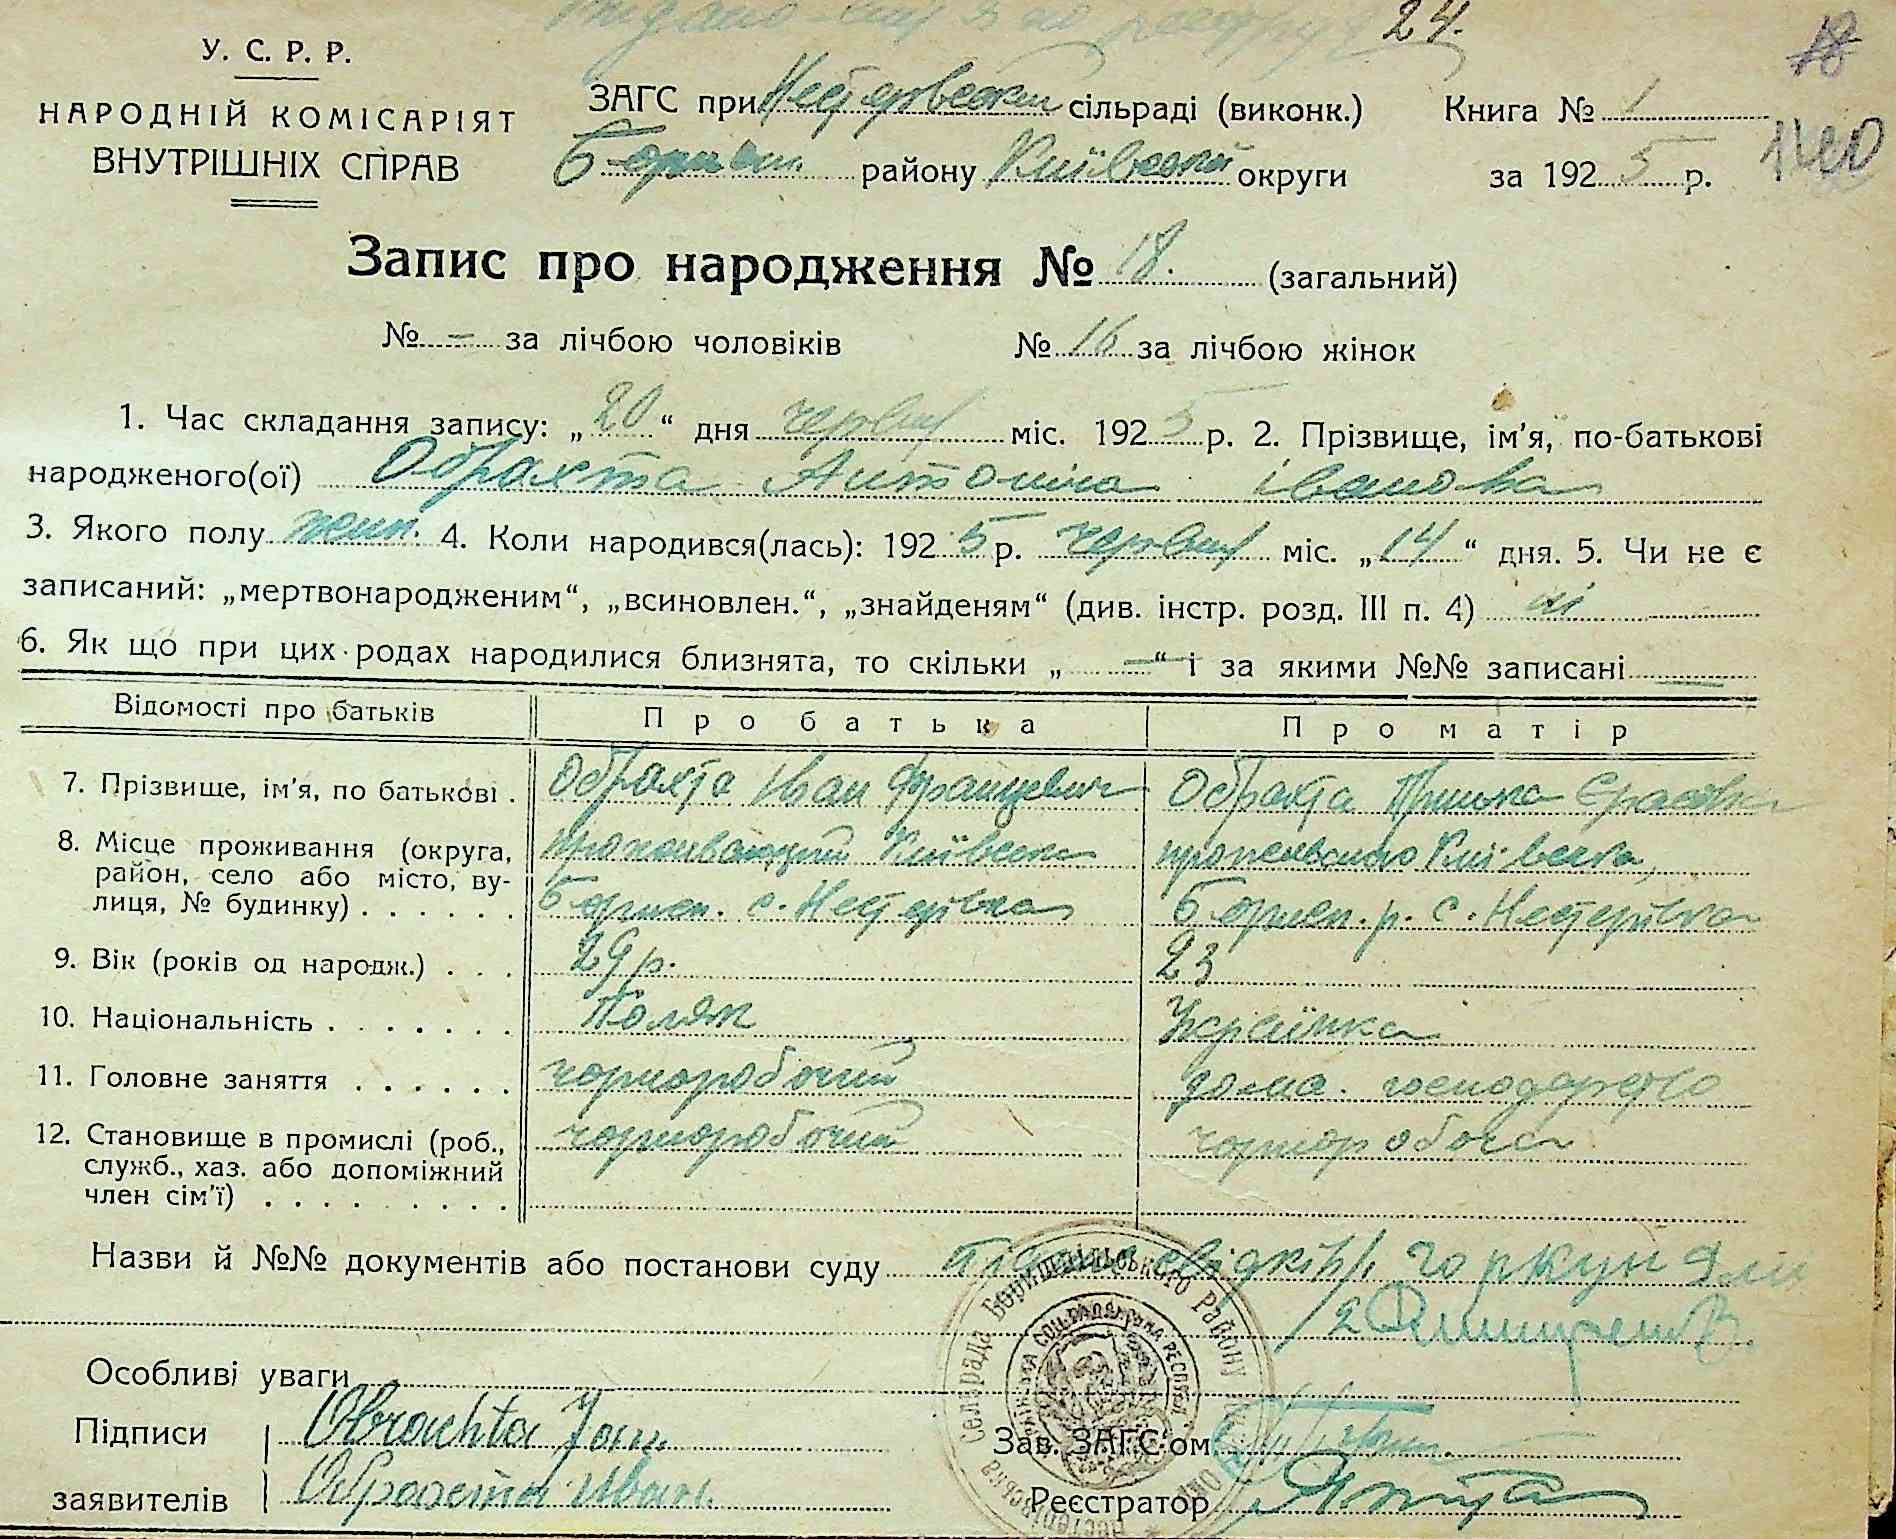 24.
18
У. С. Р. Р.
НАРОДНІЙ КОМІСАРІЯТ
ВНУТРІШНІХ СПРАВ
ЗАГС при Нестерівській сільраді (виконк.) Книга № 1
Борисп. району Київської округи за 1925 р.
Запис про народження № 18. (загальний)
№ – за лічбою чоловіків № 16 за лічбою жінок
1. Час складання запису: „20“ дня червня міс. 1925 р. 2. Прізвище, ім'я, по-батькові
народженого(ої) Обрахта Антоніна Івановна
3. Якого полу жін. 4. Коли народився(лась): 1925 р. червня міс. „14“ дня. 5. Чи не є
записаний: „мертвонародженим“, „всиновлен.“, „знайденям“ (див. інстр. розд. III п. 4) ні
6. Як що при цих родах народилися близнята, то скільки „—“ і за якими №№ записані —
Відомості про батьків Про батька Про матір
7. Прізвище, ім'я, по батькові . Обрахта Іван Францевич Обрахта
8. Місце проживання (округа, район, село або місто, вулиця, № будинку) . . . . . .
Київська
Борисп. с. Нестерівка Борисп. р. с. Нестерівка
9. Вік (років од народж.) . . . 29 р. 23
10. Національність . . . . . . . Поляк Українка
11. Головне заняття . . . . . . чорноробочий дома. господарство
12. Становище в промислі (роб., служб., хаз. або допоміжний член сім'ї) . . . . . . . . . чорноробочий чорноробоча
Назви й №№ документів або постанови суду
Особливі уваги
Підписи Obrachta Jan
заявителів Обрахта Иван.
Зав. ЗАГС'ом
Реєстратор
Сельрада Бориспільського Району